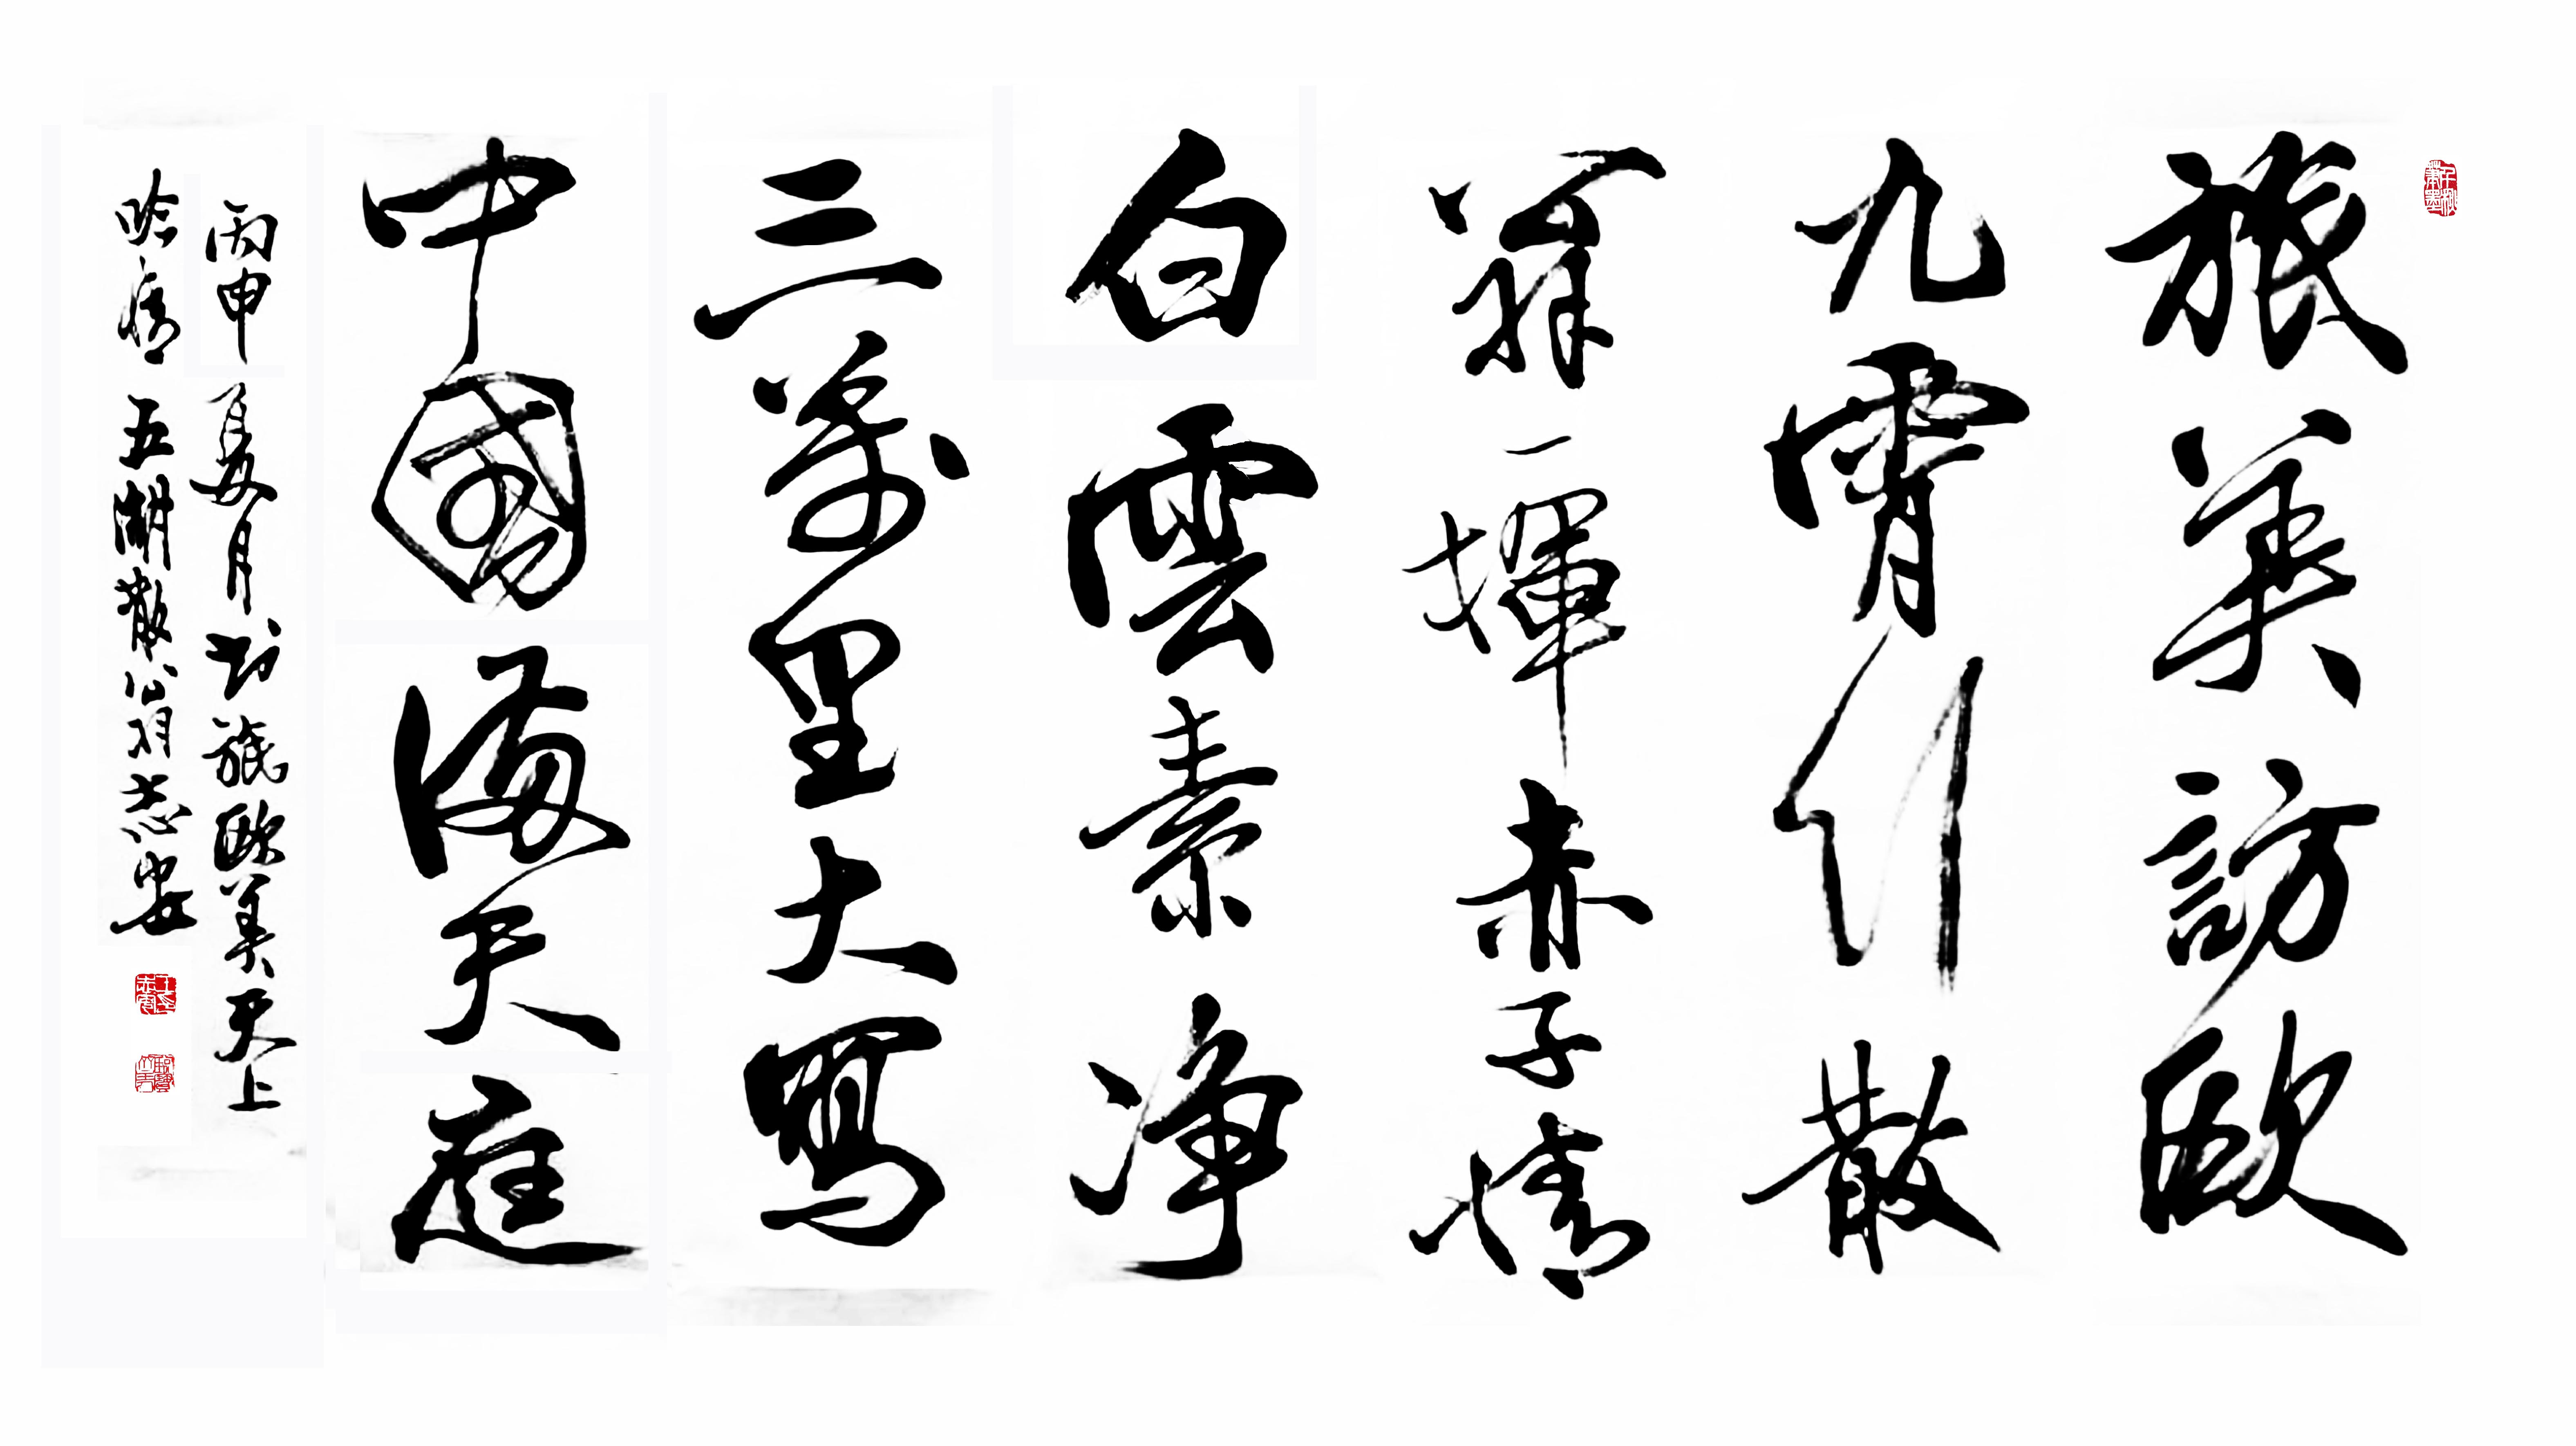 旅美訪歐
九霄行散
翁一揮赤子情
白雲素净
三萬里大寫
中國滿天庭
丙申夏月旅歐美天上
吟情五湖散翁志安